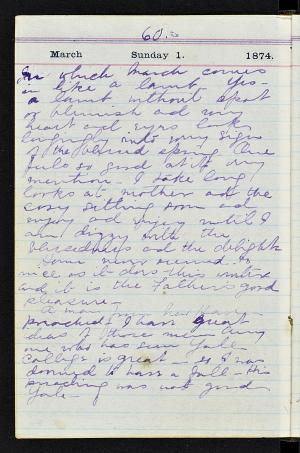 60.
March Sunday 1. 1874.
In which March comes
in like a lamb. Yes—
a lamb without spot
or blemish and my
heart and eyes look
longingly into any signs
of the blessed spring. One
feels so good at it my
mention. I take long
looks at mother and the
cosy sitting room and
enjoy and enjoy until I
am dizzy with the
blessedness and the delight
Home never seemed so
nice as it does this winter
and it is the Father's good
pleasure—
A man from
preached. I have great
those men. Any
one who has seen Yale
College is great
doomed to have a fall— His
preaching was not good
Yale—